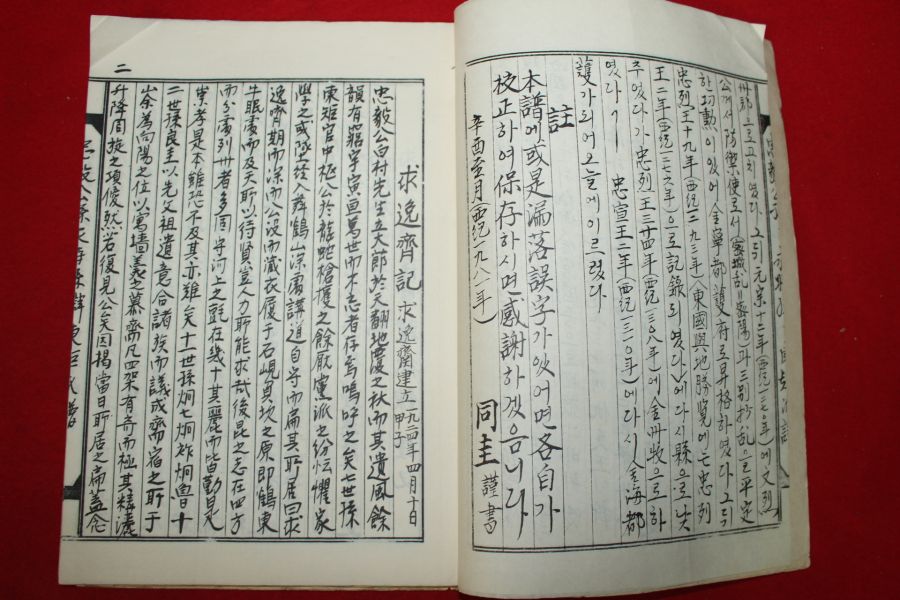 州郡으로고치였다 그뒤元宗十二年(西紀一二七〇年)에文烈
公께서防禦使로서(密城亂=密陽)과三別抄亂을平定
한功勳이있어金寧都護府로昇格하였다 그뒤
忠烈王十九年(西紀一二九三年)(東國輿地勝覽에는忠烈
王二年(西紀一二七六年)으로記錄되였다)에다시縣으로낮
추었다가忠烈王三十四年(西紀一三〇八年)에金州牧으로하
였다가 忠宣王二年(西紀一三一〇年)에다시金海都
護가되어오늘에이르렀다
註
本譜에或是漏落誤字가있어면各自가
校正하여保存하시면感謝하겠읍니다
辛酉至月(西紀一九八一年) 同圭謹書
二
求逸齊記 求逸齋建立一九二四年四月十日 甲子
忠毅公白村先生立大節於天翻地覆之秋而其遺風餘
韻有竆宇宙亘萬世而不忘者存焉嗚呼之矣七世孫
東班官中樞公於龍蛇槍攘之餘厭黨派之紛紜懼家
學之或墜於入舞鶴山深處講道自守而扁其所居曰求
逸齊期而深而公沒而藏衣履于石峴負坎之原卽鶴東
牛眠處而及天所以待賢豈人力所能求哉後昆之志在四方
而分處列卅者多同守河上之
崇孝是本雖恐不及其亦雖矣十一世孫炯七炯祚炯魯十
二世孫良圭以先父祖遺意合諸族而議成齋宿之所于
山余爲向陽之位以寓墻羹之慕齋凡四架有奇而極其精灑
升降周旋之項優然若復見公矣因揭當日所居之扁蓋念